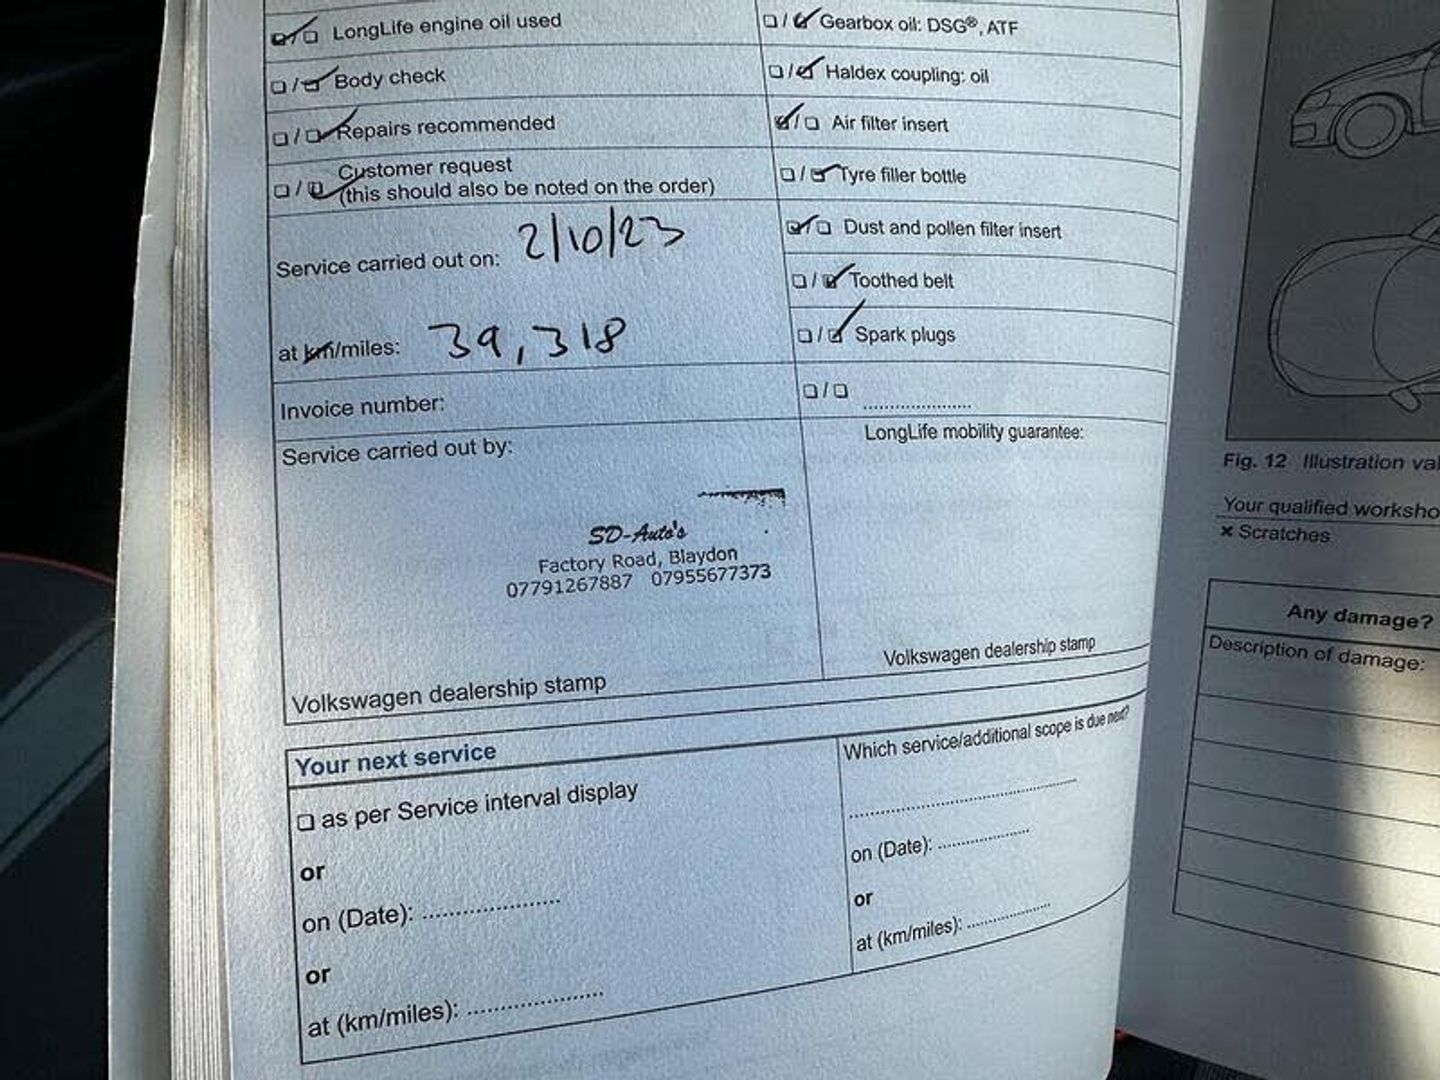 LongLife engine oil used
Body check
Repairs recommended
Customer request
(this should also be noted on the order)
Service carried out on: 2/10/23
at km/miles: 39,318
Invoice number:
Service carried out by:
SD-Auto's
Factory Road, Blaydon
07791267887 07955677373
Volkswagen dealership stamp
/ Gearbox oil: DSG®, ATF
/ Haldex coupling: oil
/ Air filter insert
/ Tyre filler bottle
/ Dust and pollen filter insert
/ Toothed belt
/ Spark plugs
/ ....................
LongLife mobility guarantee:
Volkswagen dealership stamp
Your next service
as per Service interval display
or
on (Date): ....................
or
at (km/miles): ....................
Which service/additional scope is due next?
....................
on (Date): ....................
or
at (km/miles): ....................
Fig. 12 Illustration
Your qualified
× Scratches
Any damage?
Description of damage: